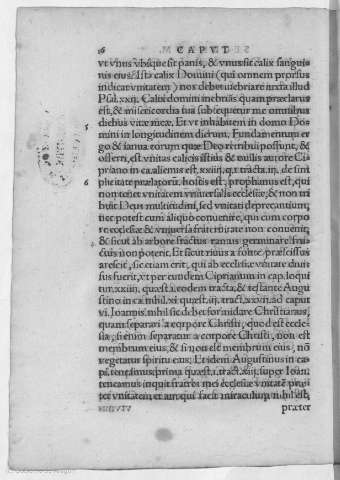 16 CAPVT
vt vnus vbique sit panis, & vnus sit calix sangui
nis eius. Ista calix Domini (qui omnem prorsus
indicat vnitatem) nos debet inebriare iuxta illud
Psal. xxii. Calix domini inebriãs quam præclarus
est, & misericordia tua subsequetur me omnibus
diebus vitæ meæ. Et vt inhabitem in domo Do
mini in longitudinem dierum. Fundamentum er
go & ianua eorum quæ Deo retribui possunt, &
offerri, est vnitas calicis istius & ouilis autore Ci
priano in ca. alienus est, xxiiii. q. i tracta. iii. de sim
plicitate prælatorũ. hostis est, prophanus est, qui
non tenet vnitatem vniuersalis ecclesiæ, & non tri
buit Deus multitudini, sed vnitati deprecantium,
nec potest cum aliquo conuenire, qui cum corpo
re ecclesiæ & vniuersa fraternitate non conuenit,
& sicut ab arbore fractus ramus germinare fru-
ctus non poterit. Et sicut riuus a fonte præscissus
arescit, sic etiam erit, qui ab ecclesiæ vnitate diui-
sus fuerit, vt per eundem Ciprianum in cap. loqui
tur. xxiiii. quæst. i. eodem tracta, & testante Augu
stino in ca. nihil. xi quæst. iii. tract. xxvii. ad caput
vi. Ioannis. nihil sic debet formidare Christianus,
quam separari a corpore Christi, quod est eccle-
sia, si enim separatur a corpore Christi, non est
membrum eius, & si non est membrum eius, nõ
vegetatur spiritu eius, Et idem Augustinus in ca-
pi. teneamus prima quæst. i. tract. xiii. super Ioan.
teneamus inquit fratres mei ecclesiæ vnitatẽ præ
ter vnitatem et am qui facit miraculum nihil est,
præter
5
6